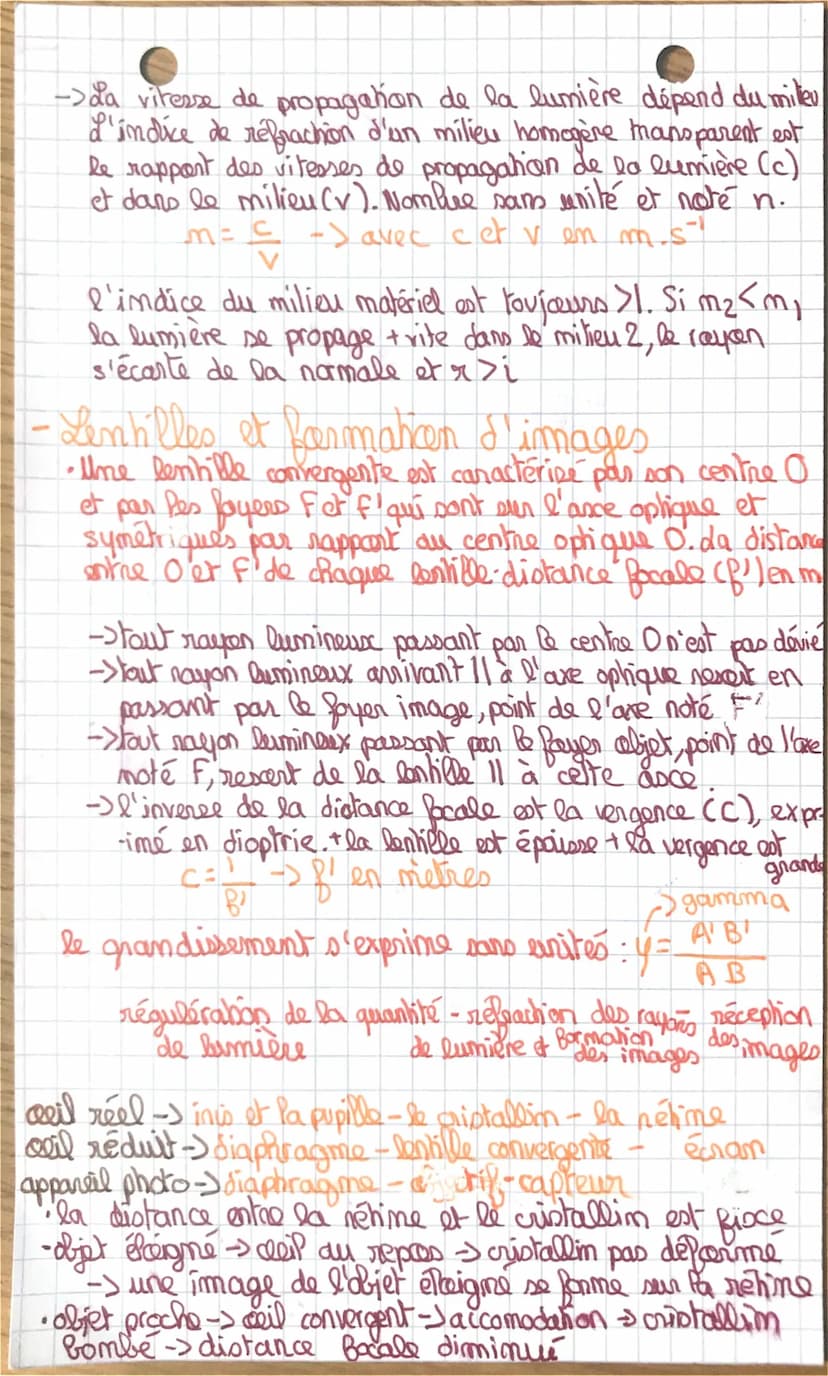 -> La vitesse de propagation de la lumière dépend du milieu
L'indice de réfraction d'un milieu homogène transparent est
le rapport des vitesses de propagation de la lumière (c)
et dans le milieu (v). Nombre sans unité et noté n.
n = c/v -> avec c et v en m.s⁻¹
l'indice du milieu matériel est toujours >1. Si n₂ < n₁
la lumière se propage + vite dans le milieu 2, le rayon
s'écarte de la normale et r > i
- Lentilles et formation d'images
• Une lentille convergente est caractérisé par son centre O
et par les foyers F et F' qui sont sur l'axe optique et
symétriques par rapport au centre optique O. La distance
entre O et F' de chaque lentille: distance focale (f') en m
-> tout rayon lumineux passant par le centre O n'est pas dévié
-> tout rayon lumineux arrivant // à l'axe optique ressort en
passant par le foyer image, point de l'axe noté F'
-> tout rayon lumineux passant par le foyer objet, point de l'axe
noté F, ressort de la lentille // à cette axe.
-> l'inverse de la distance focale est la vergence (C), expr-
-imé en dioptrie. + la lentille est épaisse + la vergence est
grande
C = 1/f' -> f' en mètres
-> gamma
le grandissement s'exprime sans unités : γ = A'B'/AB
régulération de la quantité - réfraction des rayons réception
de lumière de lumière et formation des images des images
œil réel -> iris et la pupille - le cristallin - la rétine
œil réduit -> diaphragme - lentille convergente - écran
appareil photo -> diaphragme - objectif - capteur
• la distance entre la rétine et le cristallin est fixe
- objet éloigné -> œil au repos -> cristallin pas déformé
-> une image de l'objet éloigné se forme sur la rétine
• objet proche -> œil convergent -> accomodation -> cristallin
bombé -> distance focale diminué